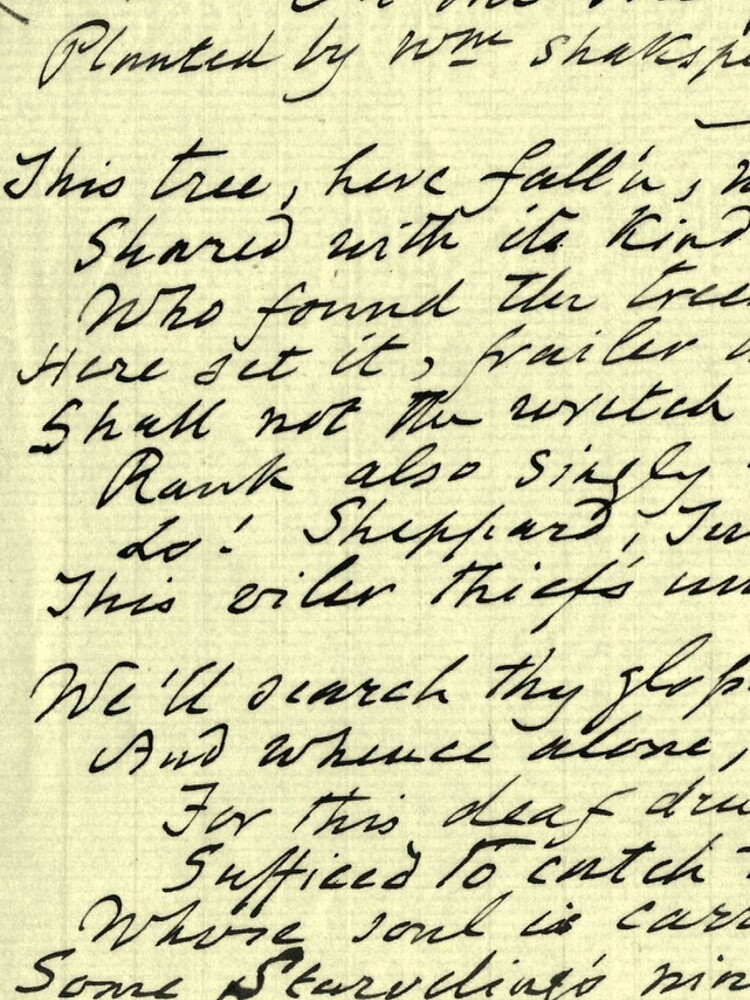 Planted by Wm Shaksp
This tree, here fall'n,
Shared with its kind
Who found the tree
Here set it, frailer
Shall not the wretch
Rank also singly
Lo! Sheppard,
This viler thief's
We'll search thy glos
And whence alone,
For this deaf dru
Sufficed to catch
Whose soul is carr
Some Starveling's nin